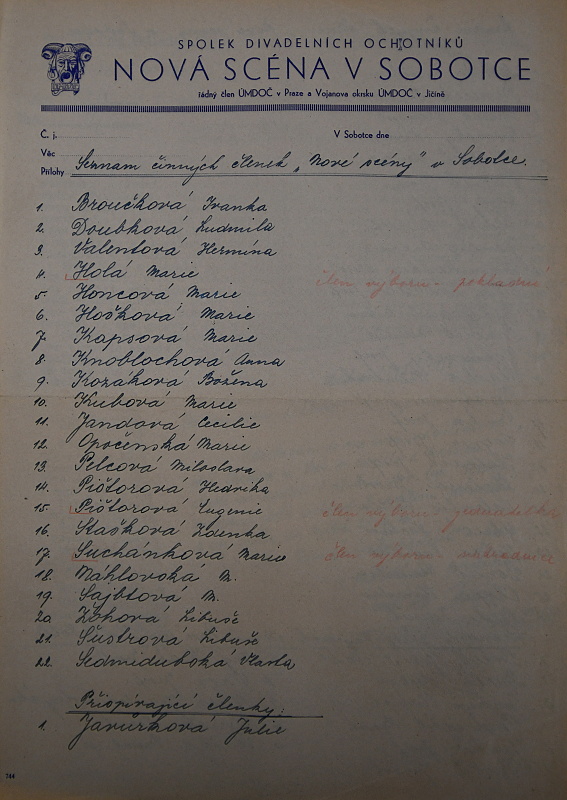 SPOLEK DIVADELNÍCH OCHOTNÍKŮ
NOVÁ SCÉNA V SOBOTCE
řádný člen ÚMDOČ v Praze a Vojanova okrsku ÚMDOČ v Jičíně
Č. j. V Sobotce dne
Věc
Přílohy Seznam činných členek „Nové scény" v Sobotce.
1. Broučková Ivanka
2. Doubková Ludmila
3. Valentová Hermína
4. Holá Marie člen výboru - pokladní
5. Honcová Marie
6. Hošková Marie
7. Kapsová Marie
8. Knoblochová Anna
9. Kozáková Božena
10. Kubová Marie
11. Jandová Cecilie
12. Opočenská Marie
13. Pelcová Miloslava
14. Pištorová Hedvika
15. Pištorová Eugenie člen výboru - jednatelka
16. Stašková Zdenka
17. Suchánková Marie člen výboru -
18. Náhlovská M.
19. Sajbtová M.
20. Libuše
21. Šustrová Libuše
22. Sedmidubská Vlasta
Přispívající členky:
1. Javůrková Julie
744